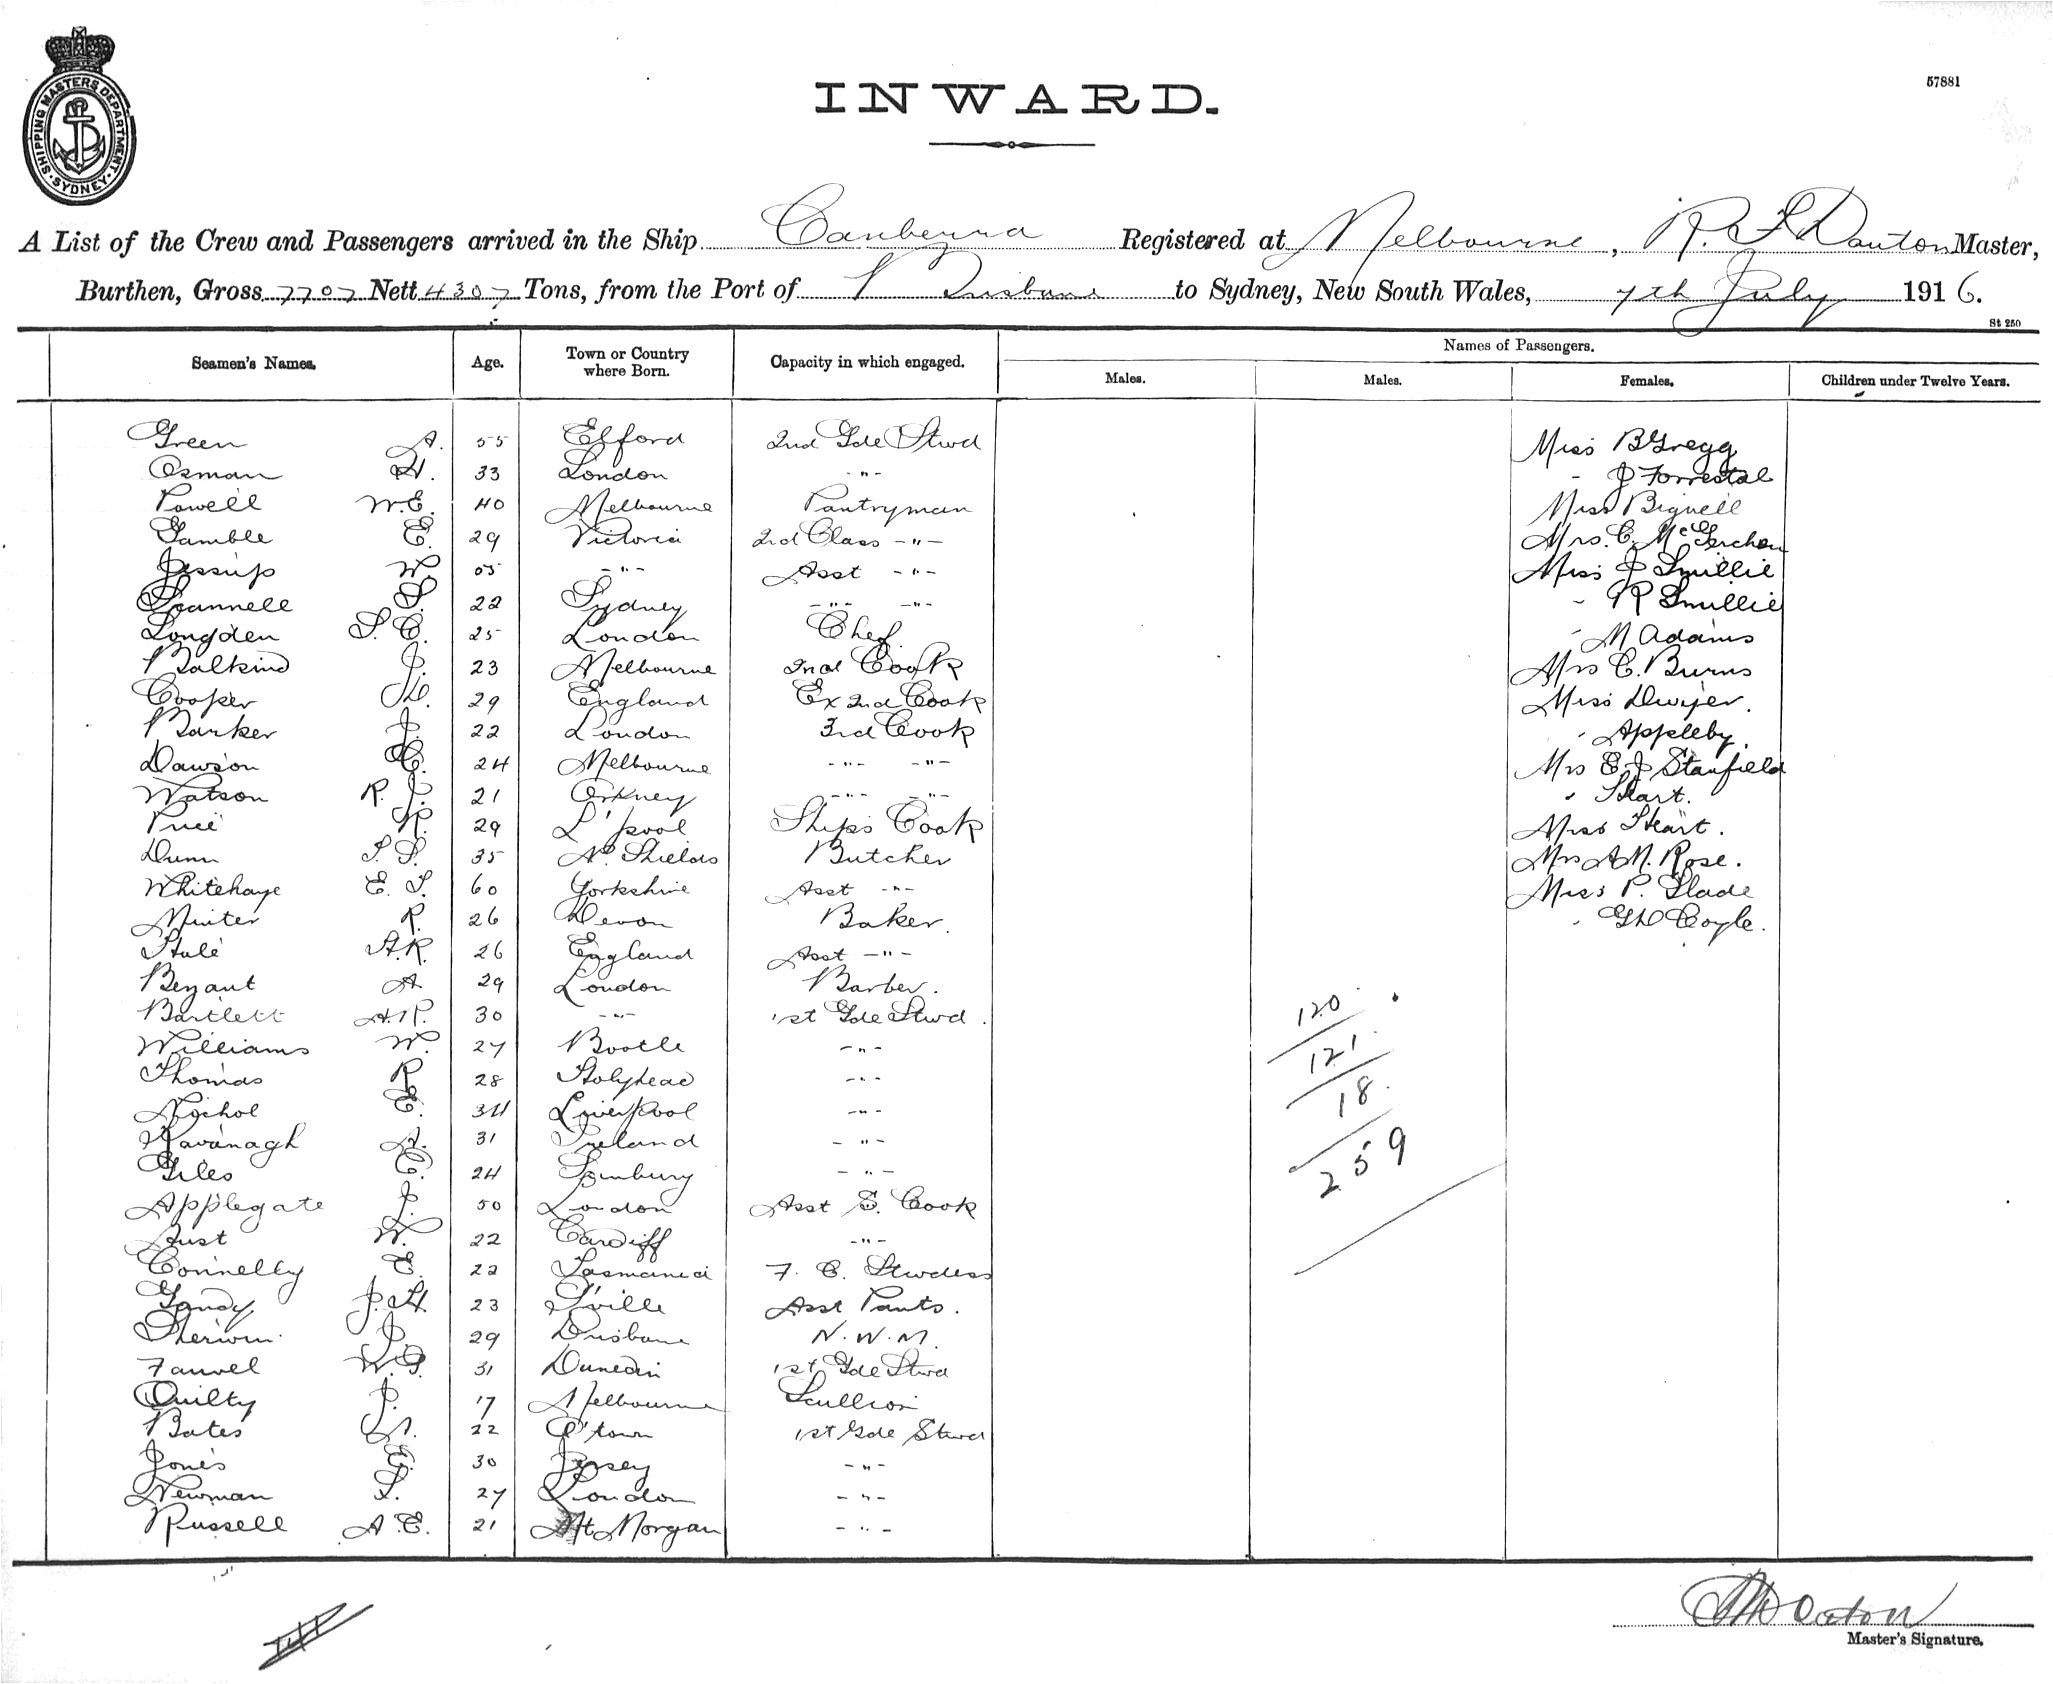 SHIPPING MASTERS DEPARTMENT. SYDNEY.
57881
INWARD.
A List of the Crew and Passengers arrived in the Ship Canberra Registered at Melbourne, R. Master,
Burthen, Gross 7707 Nett 4307 Tons, from the Port of Brisbane to Sydney, New South Wales, 7th July 1916.
St 250
Seamen's Names. Age. Town or Country where Born. Capacity in which engaged. Names of Passengers.
Males. Males. Females. Children under Twelve Years.
Green A. 55 Elford 2nd Gde Stwd Miss B Gregg
Osman H. 33 London -"- - J Forrestal
Powell W.E. 40 Melbourne Pantryman Miss Bignell
Gamble E. 29 Victoria 2nd Class -"- Mrs. C.
Jessup W. -"- Asst -"- Miss J Smillie
Scannell S. 22 Sydney -"- -"- - R Smillie
Longden S. C. 25 London Chef - M Adams
Balkind J. 23 Melbourne 2nd Cook Mrs C. Burns
Cooper 29 England Ex 2nd Cook Miss Dwyer.
Barker J. 22 London 3rd Cook - Appleby
Dawson C. 24 Melbourne -"- -"- Mrs E J Stanfield
Watson R. J. 21 Orkney -"- -"- - Hart.
Price R. 29 L'pool Ships Cook Miss Heart.
Dunn 35 No. Shields Butcher Mrs A M. Rose.
Whitehaye 60 Yorkshire Asst -"- Miss P. Slade
Minter R. 26 Devon Baker. - Coyle.
Hale A.R. 26 England Asst -"-
Bryant A 29 London Barber.
Bartlett A.R. 30 -"- 1st Gde Stwd. 120
Williams W. 27 Bootle -"- 121
Thomas R 28 Holyhead -"- 18
Nichol E. 34 Liverpool -"-
Kavanagh A. 31 Ireland -"- 259
Giles C. 24 -"-
Applegate J. 50 London Asst S. Cook
Aust W. 22 Cardiff -"-
Connelly E. 22 Tasmania F. C. Stwdess
Gandy J. H. 23 T'ville Asst Pants.
Sherwin J. 29 Brisbane N. W. M.
W. G. 31 Dunedin 1st Gde Stwd
Quilty J. 17 Melbourne Scullion
Bates 22 1st Gde Stwd
Jones E. 30 Jersey -"-
Newman S. 27 London -"-
Russell A. E. 21 Mt Morgan -"-
Master's Signature.